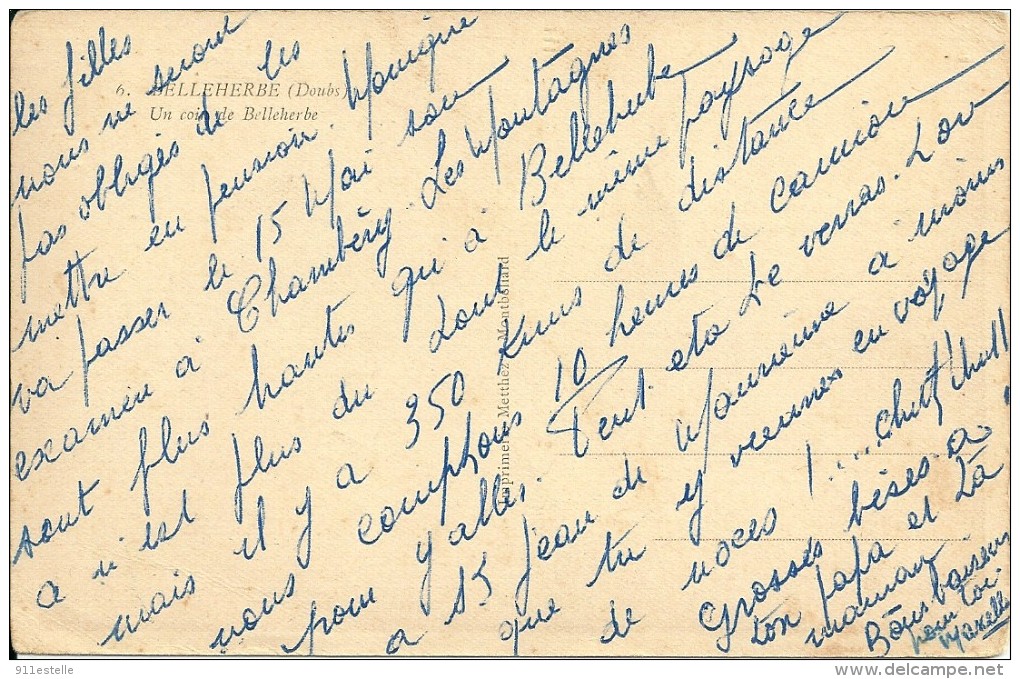 6. BELLEHERBE (Doubs)
Un coin de Belleherbe
Imprimerie Metthez, Montbéliard
les filles
nous ne serons
pas obligés de les
mettre en pension. Monique
va passer le 15 Mai son
examen à Chambéry. Les Montagnes
sont plus hautes qu'à Belleherbe
ce n'est plus du tout le même paysage
mais il y a 350 Kms de distance
nous comptons 10 heures de camion
pour y aller. Peut etre Le verras. Tou
a St Jean de Maurienne a moins
que tu y viennes en voyage
de noces !.... Chut! Chut!!
Grosses bises a
ton papa et Ta
maman
Bons baisers
pour toi
911estelle